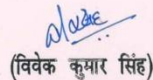 (विवेक कुमार सिंह)